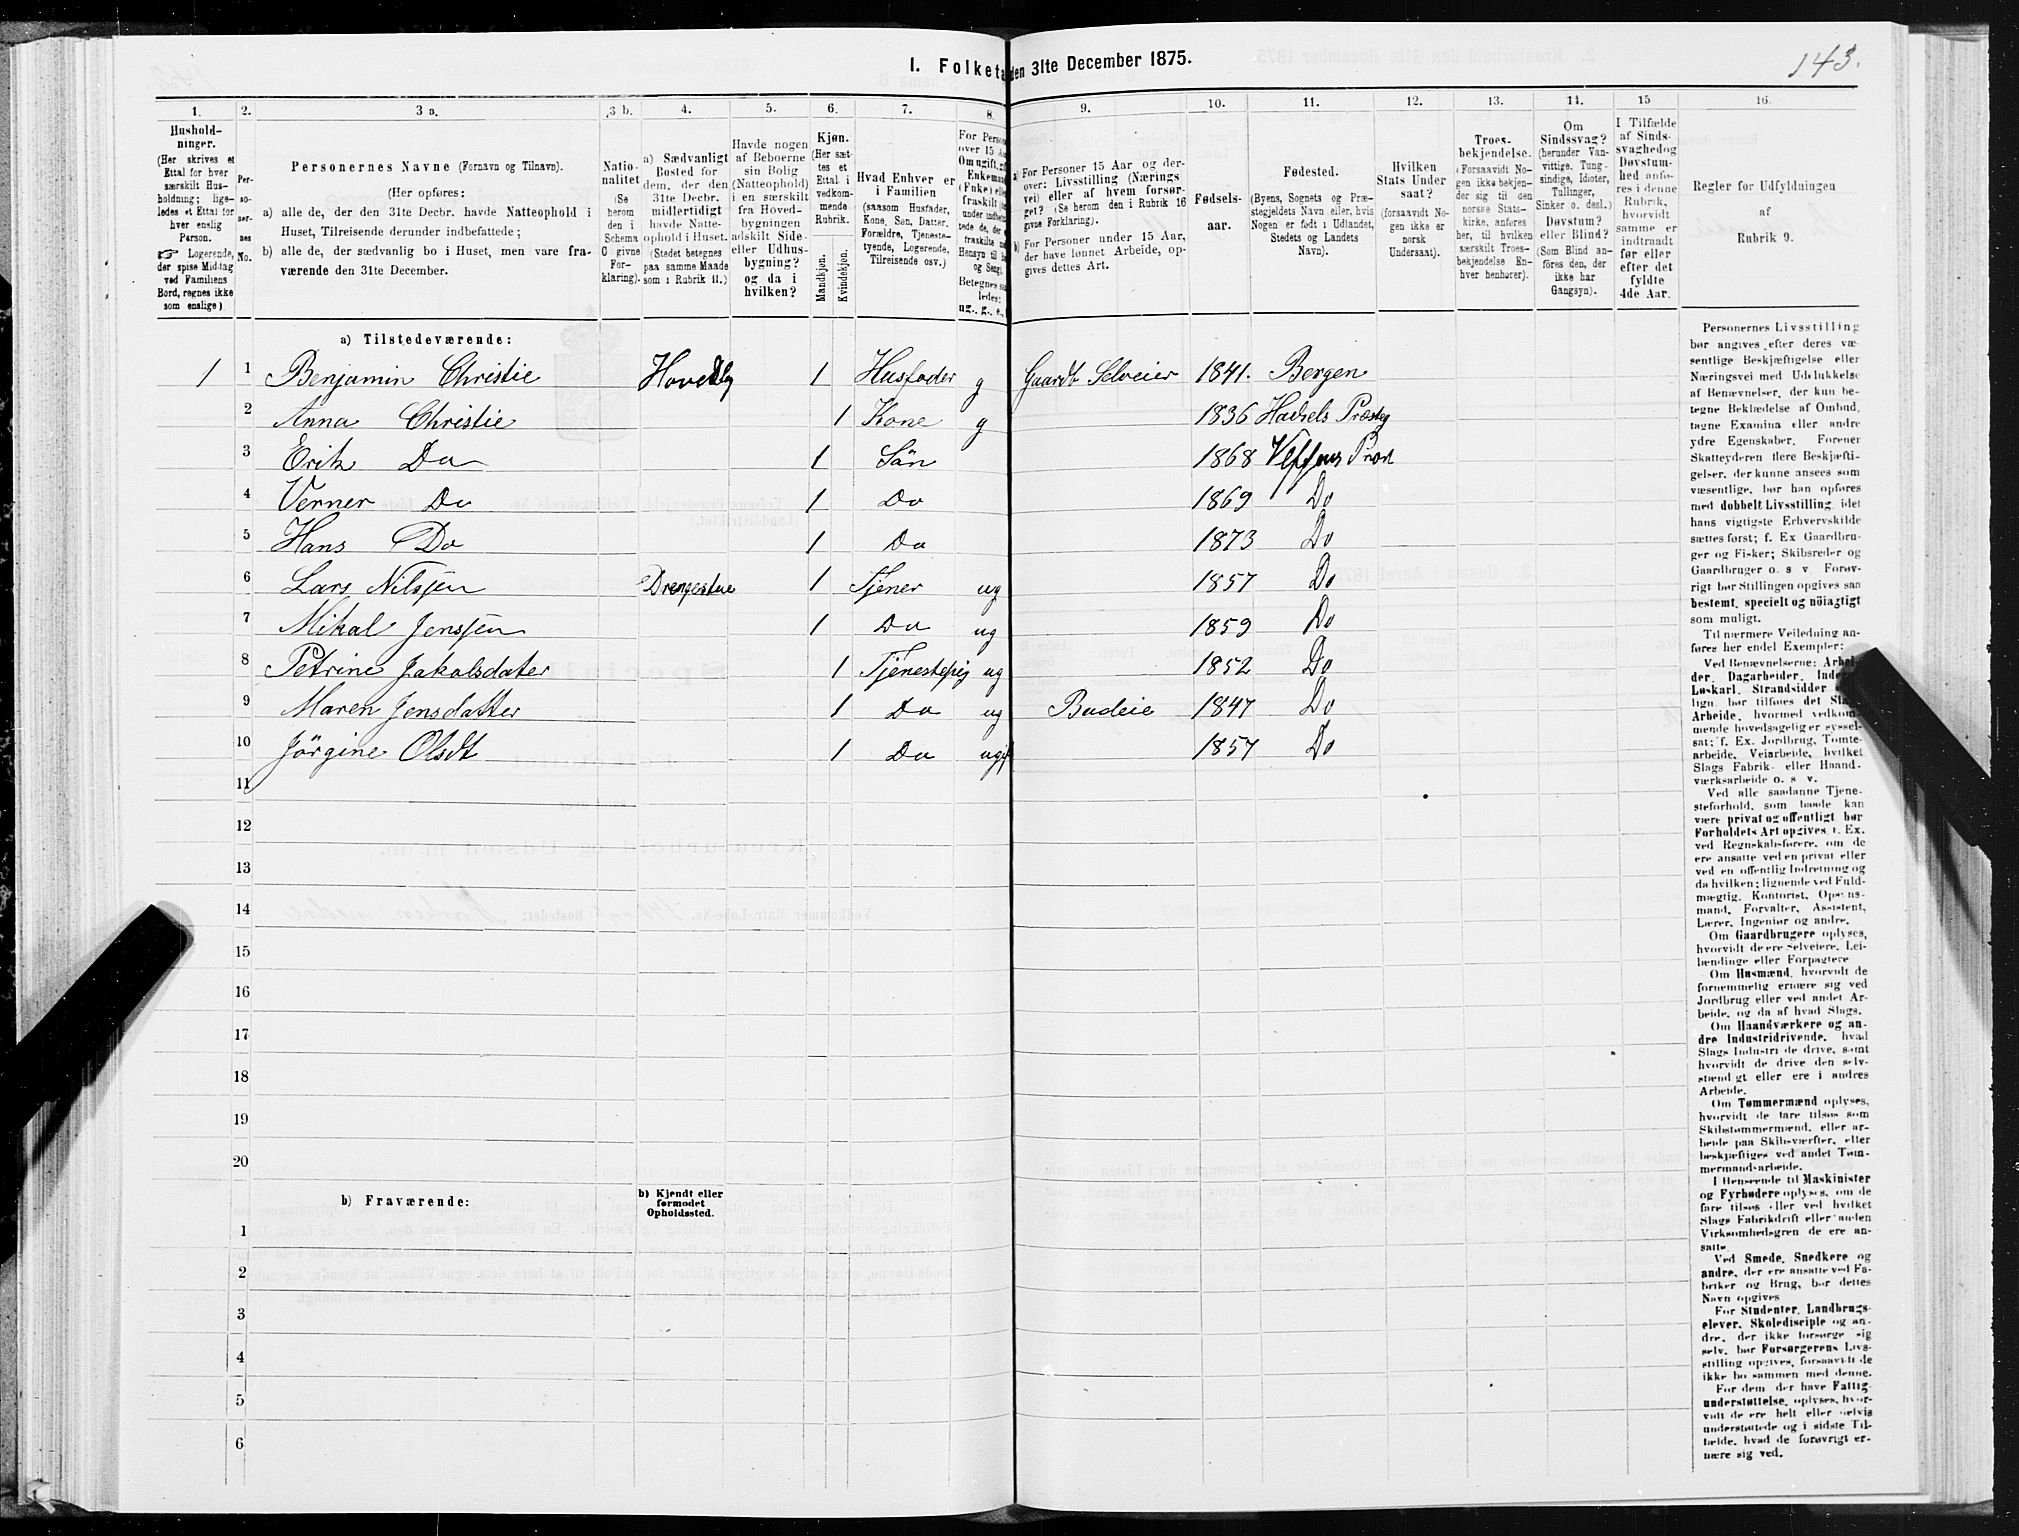 I. Folketæ
den 31te December 1875.
143.
1.
2.
3 a.
3 b.
4.
5.
6.
7.
8.
9.
10.
11.
12.
13.
14.
15
16.
Hushold-
ninger.
(Her skrives et
Ettal for hver
særskilt Hus-
holdning; lige-
ledes et Ettal for
hver enslig
Person.
☞ Logerende,
der spise Middag
ved Familiens
Bord, regnes ikke
som enslige).
Per-
so-
ner-
nes
No.
Personernes Navne (Fornavn og Tilnavn).
(Her opføres:
a) alle de, der den 31te Decbr. havde Natteophold i
Huset, Tilreisende derunder indbefattede;
b) alle de, der sædvanlig bo i Huset, men vare fra-
værende den 31te December.
Natio-
nalitet
(Se
herom
den i
Schema
O givne
For-
klaring).
a) Sædvanligt
Bosted for
dem, der den
31te Decbr.
midlertidigt
havde Natte-
ophold i Huset.
(Stedet betegnes
paa samme Maade
som i Rubrik 11.)
Havde nogen
af Beboerne
sin Bolig
(Natteophold)
i en særskilt
fra Hoved-
bygningen
adskilt Side-
eller Udhus-
bygning?
og da i
hvilken?
Kjøn.
(Her sæt-
tes et
Ettal i
vedkom-
mende
Rubrik.
Mandkjøn.
Kvindekjøn.
Hvad Enhver er
i Familien
(saasom Husfader,
Kone, Søn, Datter,
Forældre, Tjeneste-
tyende, Logerende,
Tilreisende osv.)
For Person
over 15 A
Om ugift, gi
Enkema
(Enke) elle
fraskilt
Betegnes s
ledes:
ug., g., e.,
a) For Personer 15 Aar og der-
over: Livsstilling (Nærings
vei) eller af hvem forsør-
get? (Se herom den i Rubrik 16
givne Forklaring).
b) For Personer under 15 Aar,
der have lønnet Arbeide, op-
gives dettes Art.
Fødsels-
aar.
Fødested.
(Byens, Sognets og Præ-
stegjeldets Navn eller, hvis
Nogen er født i Udlandet,
Stedets og Landets
Navn).
Hvilken
Stats Under
saat?
(forsaavidt No-
gen ikke er
norsk
Undersaat).
Troes-
bekjendelse.
(Forsaavidt No-
gen ikke bekjen-
der sig til den
norske Stats-
kirke, anføres
her, til hvilken
særskilt Troes-
bekjendelse En-
hver henhører).
Om
Sindssvag?
(herunder Van-
vittige, Tung-
sindige, Idioter,
Tullinger,
Sinker o. desl.)
Døvstum?
eller Blind?
(Som Blind an-
føres den, der
ikke har
Gangsyn).
I Tilfælde
af Sinds-
svaghed og
Døvstum-
hed anfø-
res i denne
Rubrik,
hvorvidt
samme er
indtraadt
før eller
efter det
fyldte
4de Aar.
Regler for Udfyldningen
af
Rubrik 9.
a) Tilstedeværende:
1 1 Benjamin Christie Hovedbg 1 Husfader g Gaardb Selveier 1841. Bergen
2 Anna Christie 1 Kone g 1836 Hadsels Præstg
3 Erik Do 1 Sön 1868 Vefsens Præst
4 Verner Do 1 Do 1869 Do
5 Hans Do 1 Do 1873 Do
6 Lars Nilsjen Drengestue 1 Tjener ug 1857 Do
7 Mikal Jensjen 1 Do ug 1859 Do
8 Petrine Jakobsdater 1 Tjenestepig ug 1852 Do
9 Maren Jensdatter 1 Do ug Budeie 1847 Do
10 Jörgine Olsdt 1 Do ugif 1857 Do
11
12
13
14
15
16
17
18
19
20
b) Fraværende:
b) Kjendt eller
formodet
Opholdssted.
1
2
3
4
5
6
Personernes Livsstilling
bør angives efter deres væ-
sentlige Beskjæftigelse eller
Næringsvei med Udelukkelse
af Benævnelser, der kun be-
tegne Beklædelse af Ombud,
tagne Examina eller andre
ydre Egenskaber. Forener
Skatteyderen flere Beskjæfti-
gelser, der kunne ansees som
væsentlige, bør han opføres
med dobbelt Livsstilling, idet
hans vigtigste Erhvervskilde
sættes først; f. Ex Gaardbru-
ger og Fisker; Skibsreder og
Gaardbruger o. s v. Forøv-
rigt bør Stillingen opgives saa
bestemt, specielt og nøiagtigt
som muligt.
Til nærmere Veiledning an-
føres her endel Exempler:
Ved Benævnelserne: Arbei-
der, Dagarbeider, Inder
Løskarl, Strandsidder
lign. bør tilføies det Slag
Arbeide, hvormed vedkom-
mende hovedsagelig er syssel-
sat; f. Ex. Jordbrug, Tømte-
arbeide, Veiarbeide, hvilket
Slags Fabrik- eller Haand-
værksarbeide o. s v.
Ved alle saadanne Tjene-
steforhold, som baade kan
være privat og offentligt bør
Forholdets Art opgives, t. Ex.
ved Regnskabsførere, om de
ere ansatte ved en privat eller
ved en offentlig Indretning og
da hvilken; lignende ved Fuld-
mægtig, Kontorist, Opsyns-
mand, Forvalter, Assistent,
Lærer, Ingeniør og andre.
Om Gaardbrugere oplyses,
hvorvidt de ere Selveiere, Lei-
lændinge eller Forpagtere
Om Husmænd, hvorvidt de
fornemmelig ernære sig ved
Jordbrug eller ved andet Ar-
beide, og da af hvad Slags.
Om Haandværkere og an-
dre Industridrivende, hvad
Slags Industri de drive, samt
hvorvidt de drive den selv-
stændigt eller ere i andres
Arbeide.
Om Tømmermænd oplyses,
hvorvidt de fare tilsøs som
Skibstømmermænd, eller ar-
beide paa Skibsværfter, eller
beskjæftiges ved andet Tøm-
mermandsarbeide.
I Henseende til Maskinister
og Fyrbødere oplyses, om de
fare tilsøs eller ved hvilket
Slags Fabrikdrift eller anden
Virksomhedsgren de ere an-
satte
Ved Smede, Snedkere og
andre, der ere ansatte ved Fa-
briker og Brug, bør dettes
Navn opgives
For Studenter, Landbrugs-
elever, Skoledisciple og an-
dre, der ikke forsørge sig
selv, bør Forsørgerens Livs-
stilling opgives, forsaavidt de
ikke bo sammen med denne.
For dem, der have Fattig-
understøttelse, oplyses, hvor-
vidt de ere helt eller delvis
understøttede og i sidste Til-
fælde, hvad de forøvrigt er-
nære sig ved.